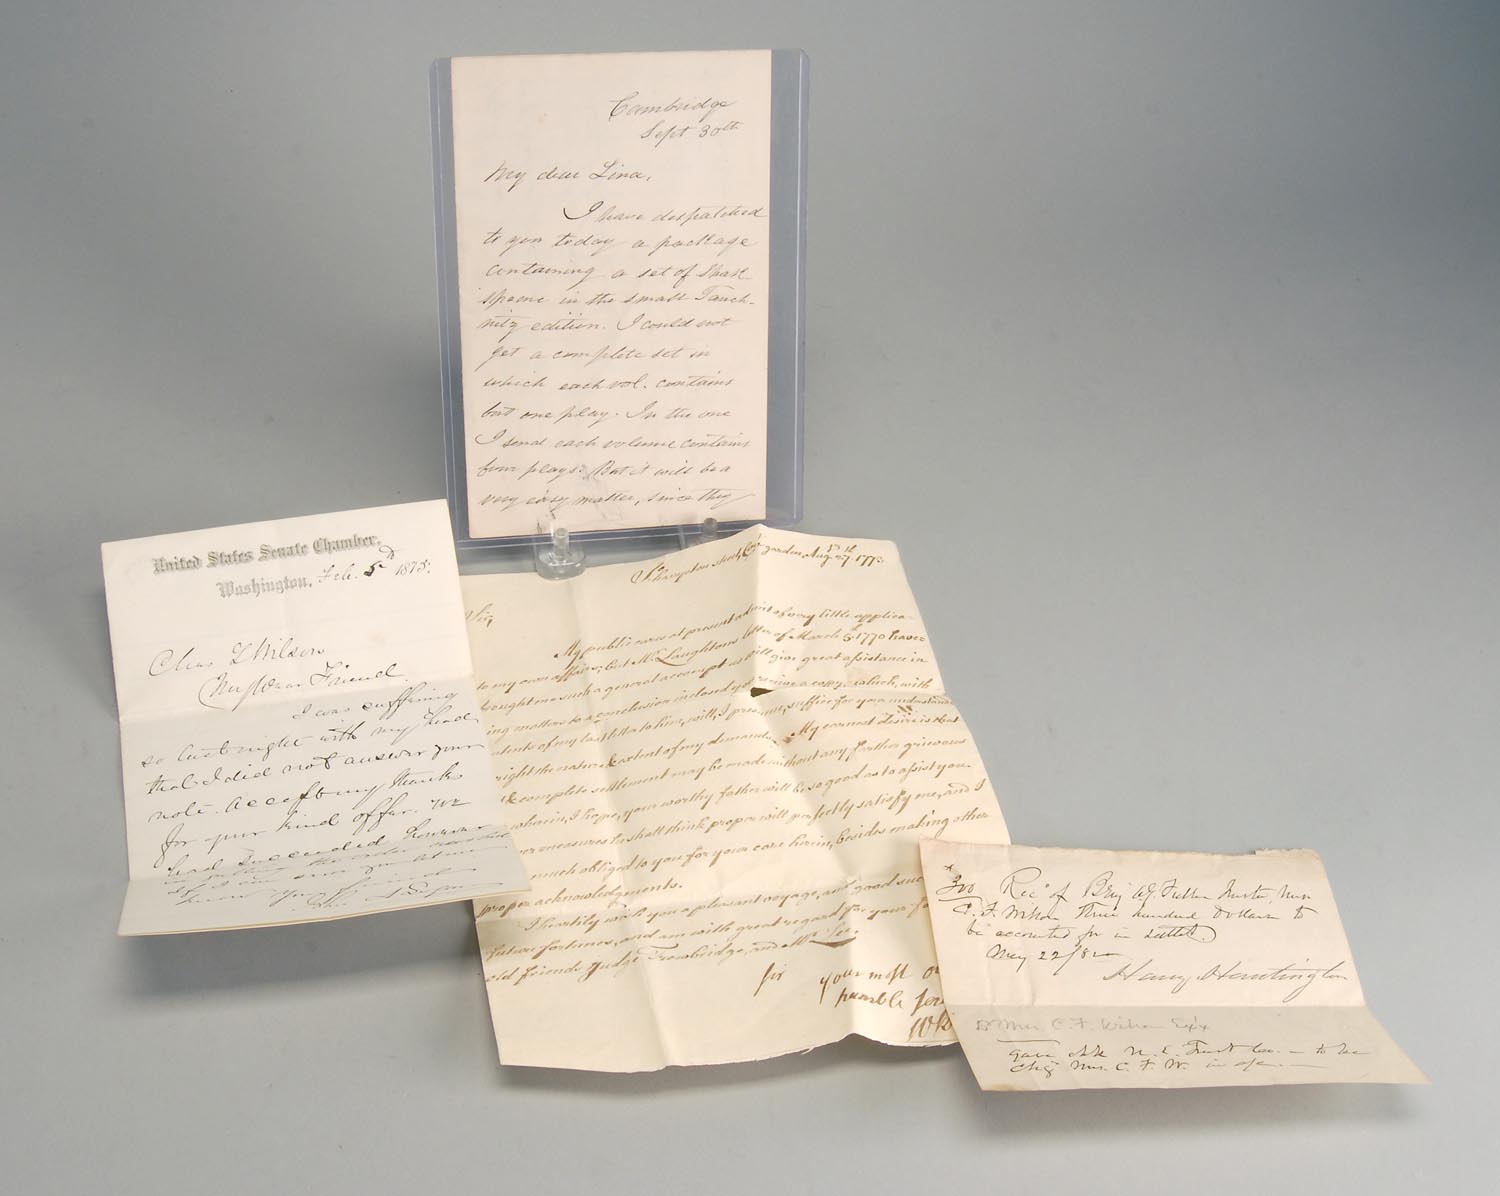 Cambridge
Sept 30th
My dear Lina,
I have despatched
to you today a package
containing a set of Shak-
speare in the small Tauch-
nitz edition. I could not
get a complete set in
which each vol. contains
but one play. In the one
I send each volume contains
four plays. But it will be a
very easy matter, since they
United States Senate Chamber,
Washington, Feb. 5th 1875.
Wilson
My Dear Friend
I was suffering
so last night with my head
that I did not answer your
note. Accept my thanks
for your kind offer. We
had succeeded however
street, garden, Aug 27th 1773
Sir,
My public cares at present admit of very little applica-
to my own affairs; but Mr. Laughton's letter of March 5th 1770 leaves
ought me such a general accompt as will give great assistance in
ing matters to a conclusion inclosed you receive a copy, which, with
ntents of my last to him, will, I presume, suffice for your understand
right the nature & extent of my demands. My earnest desire is that
& complete settlement may be made without any farther grievous
wherein, I hope, your worthy father will be so good as to assist you.
er measures he shall think proper will perfectly satisfy me, and I
much obliged to you for your care herein, besides making other
proper acknowledgments.
I heartily wish you a pleasant voyage, and good suc
future fortunes, and am with great regard for your
old friends Judge Trowbridge, and Mr. Lee.
Sir your most
humble ser
300 Rec'd of
C. F. Wilson Three hundred Dollars to
be accounted for in settlt.
May 22/82
Harry Huntington
Mrs. C. F. Wilson Ex'x
Gave N. E. Trust Co. – to be
chg Mrs. C. F. W. in